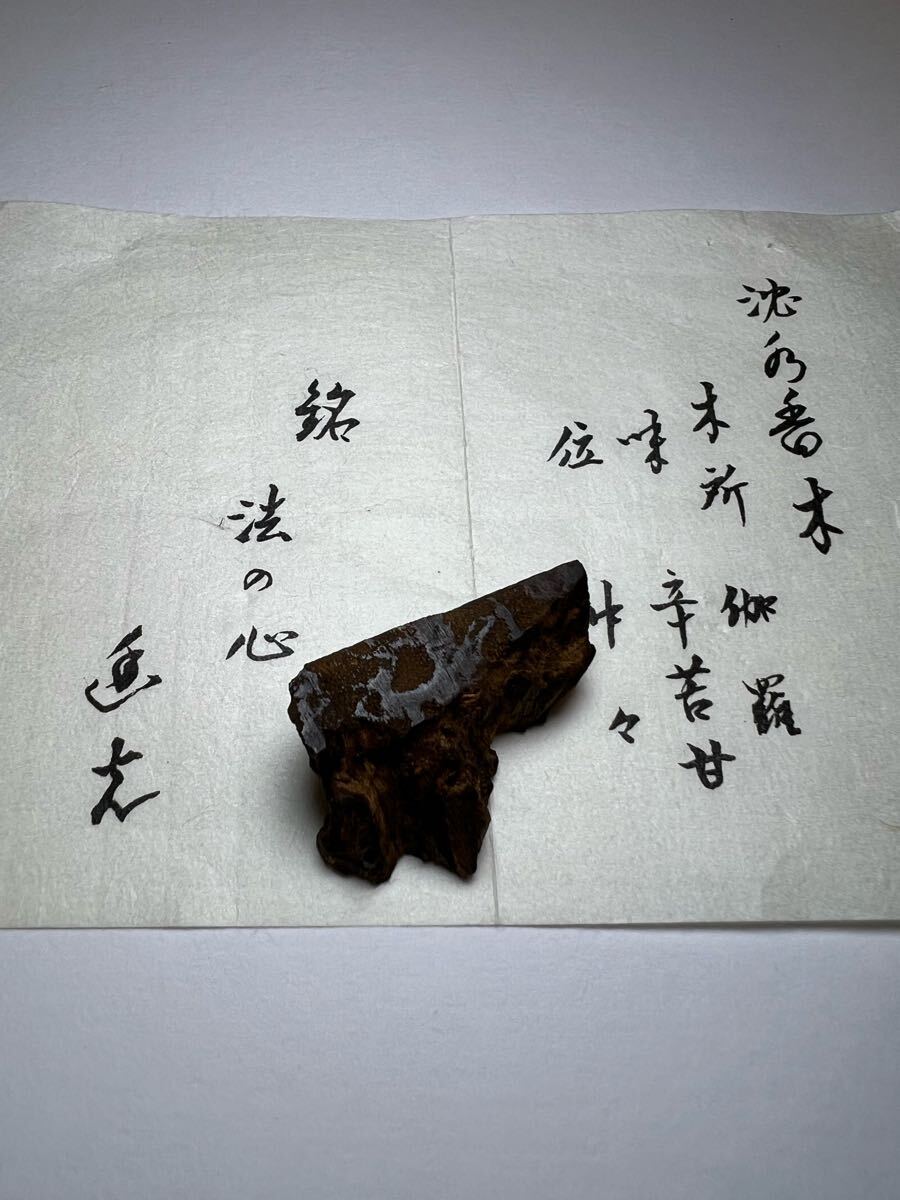 沈水香木
木所 伽羅
味 辛苦甘
位 々
銘
法の心